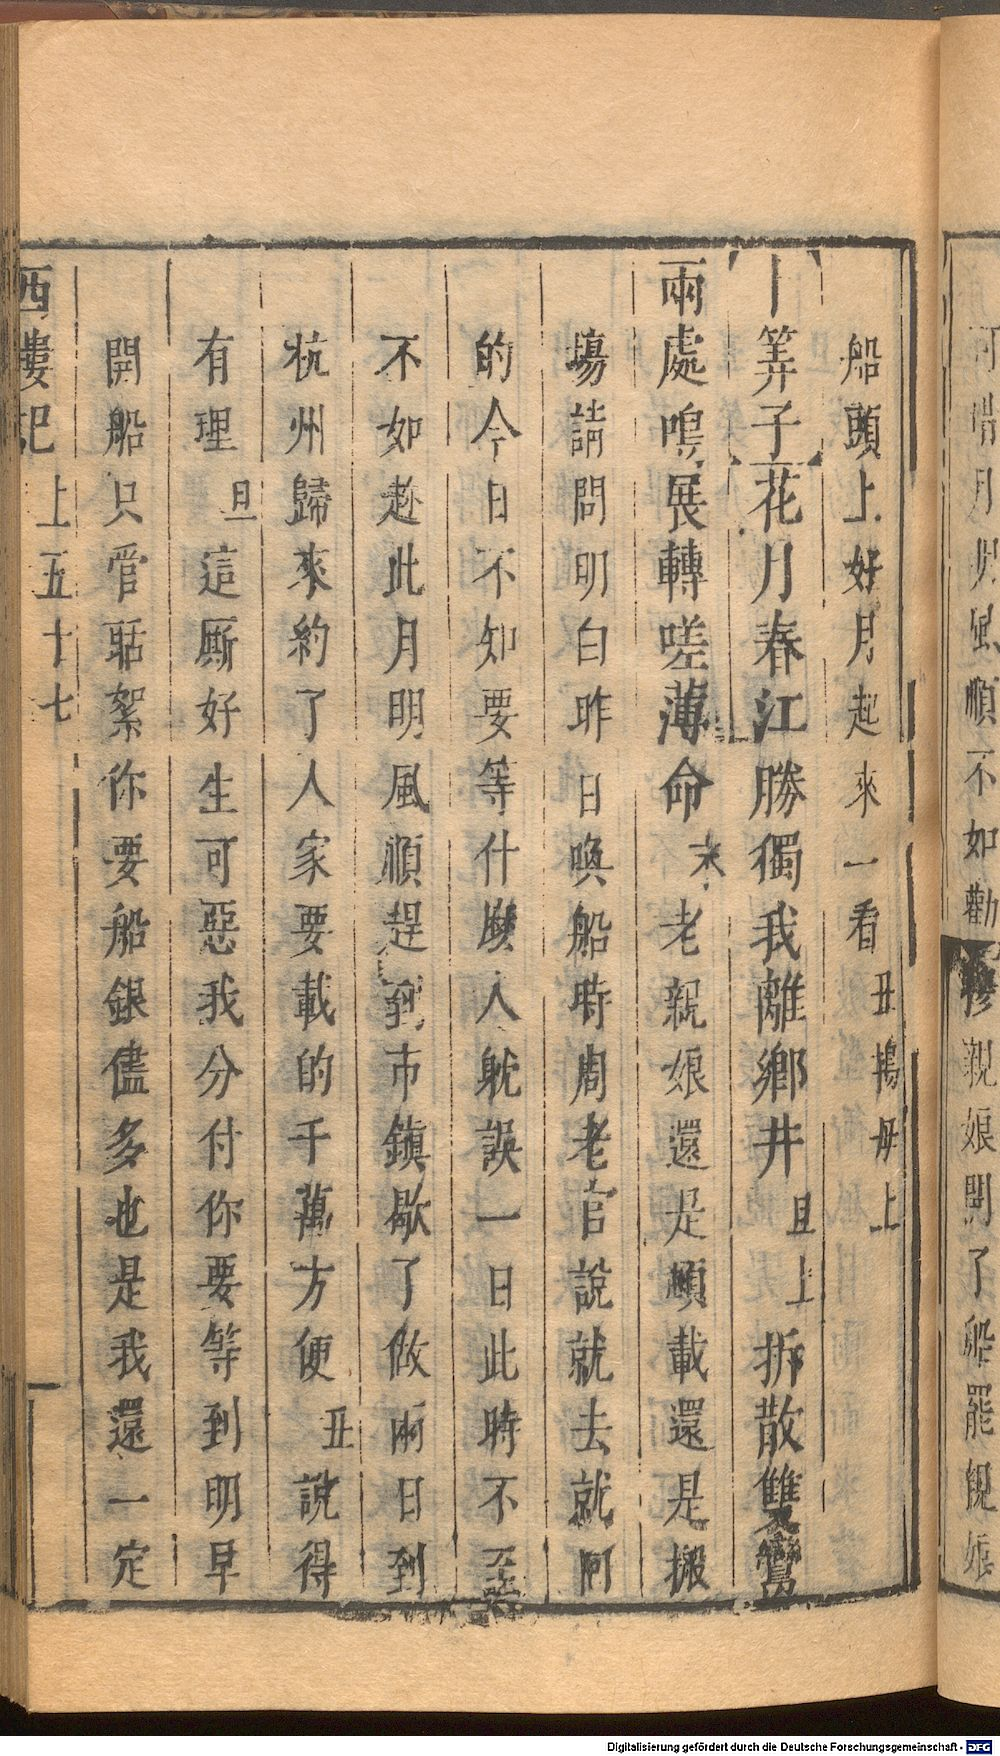 可惜月明風順不如勸親娘開了船罷親娘
船頭上好月起來一看丑搗母上
卜筭子花月春江勝獨我離鄉井旦上拆散雙鸞
兩處鳴展轉嗟薄命末老親娘還是順載還是搬
塲請問明白昨日喚船時周老官說就去就阿
的今日不知要等什麼人躭誤一日此時不至
不如趂此月明風順趕到市鎮歇了做兩日到
杭州歸來約了人家要載的千萬方便丑說得
有理旦這厮好生可惡我分付你要等到明早
開船只管聒絮你要船銀儘多也是我還一定
西樓記 上五十七
Digitalisierung gefördert durch die Deutsche Forschungsgemeinschaft - DFG